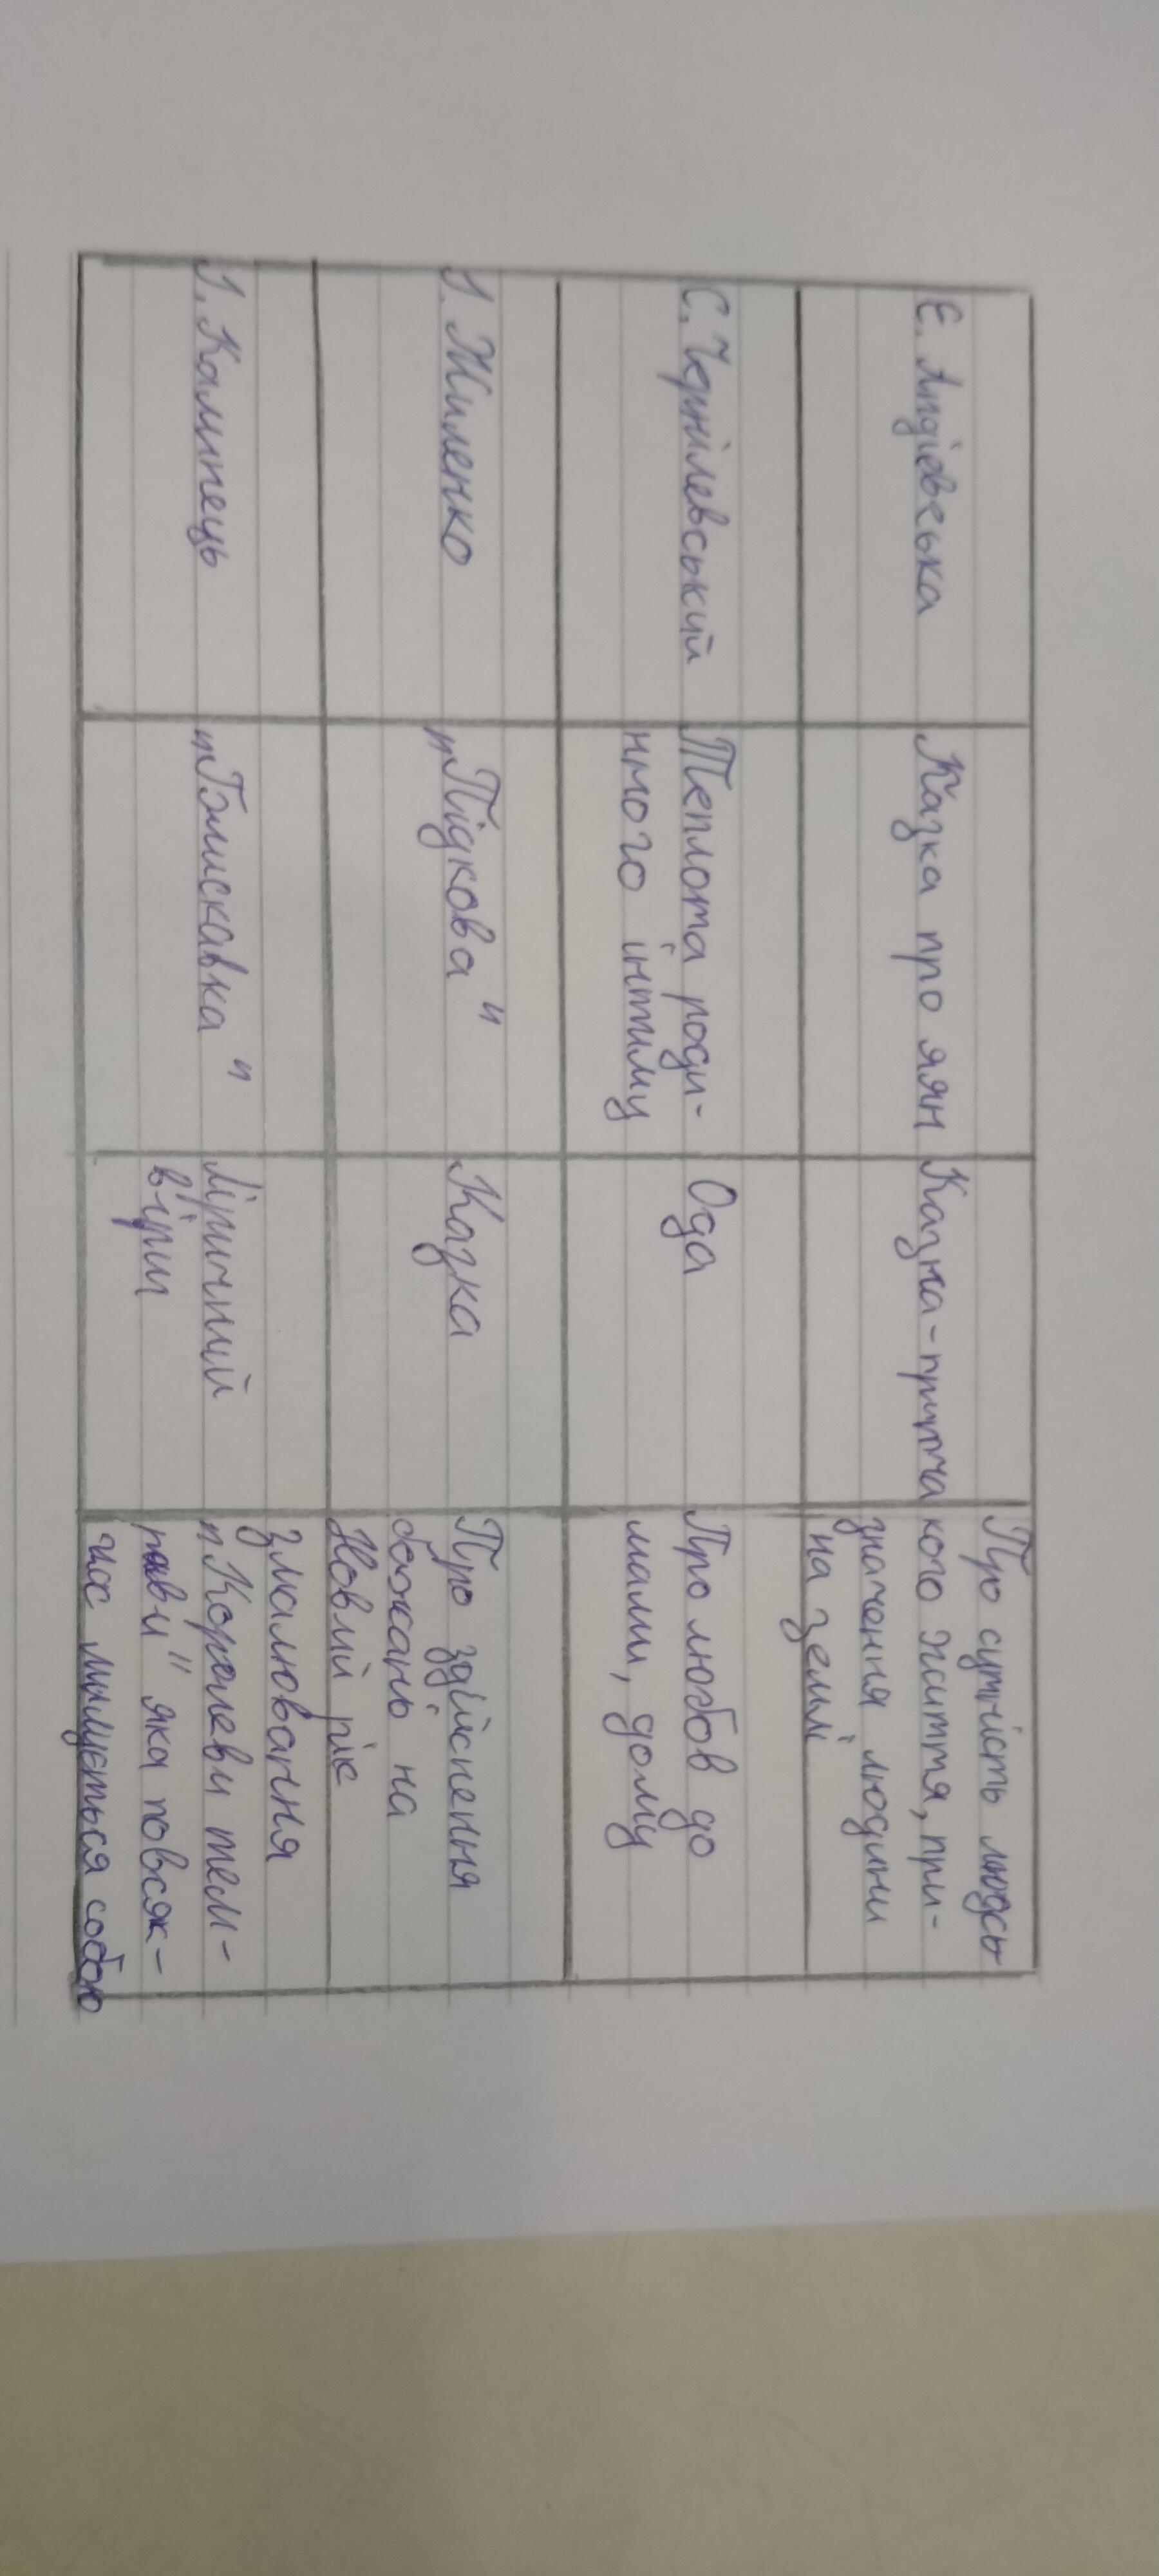 Е. Андієвська
Казка про яян
Казка-притча
Про сутність людсь
кого життя, при-
значення людини
на землі
С. Чернілевський
Теплота роди-
нмого інтиму
Ода
Про любов до
мами, дому
І. Жиленко
"Підкова"
Казка
Про здійснення
бажань на
Новий рік
І. Калинець
"Блискавка"
Ліричний
вірш
Змалювання
"Королеви тем-
ряви" яка повсяк-
час милується собою